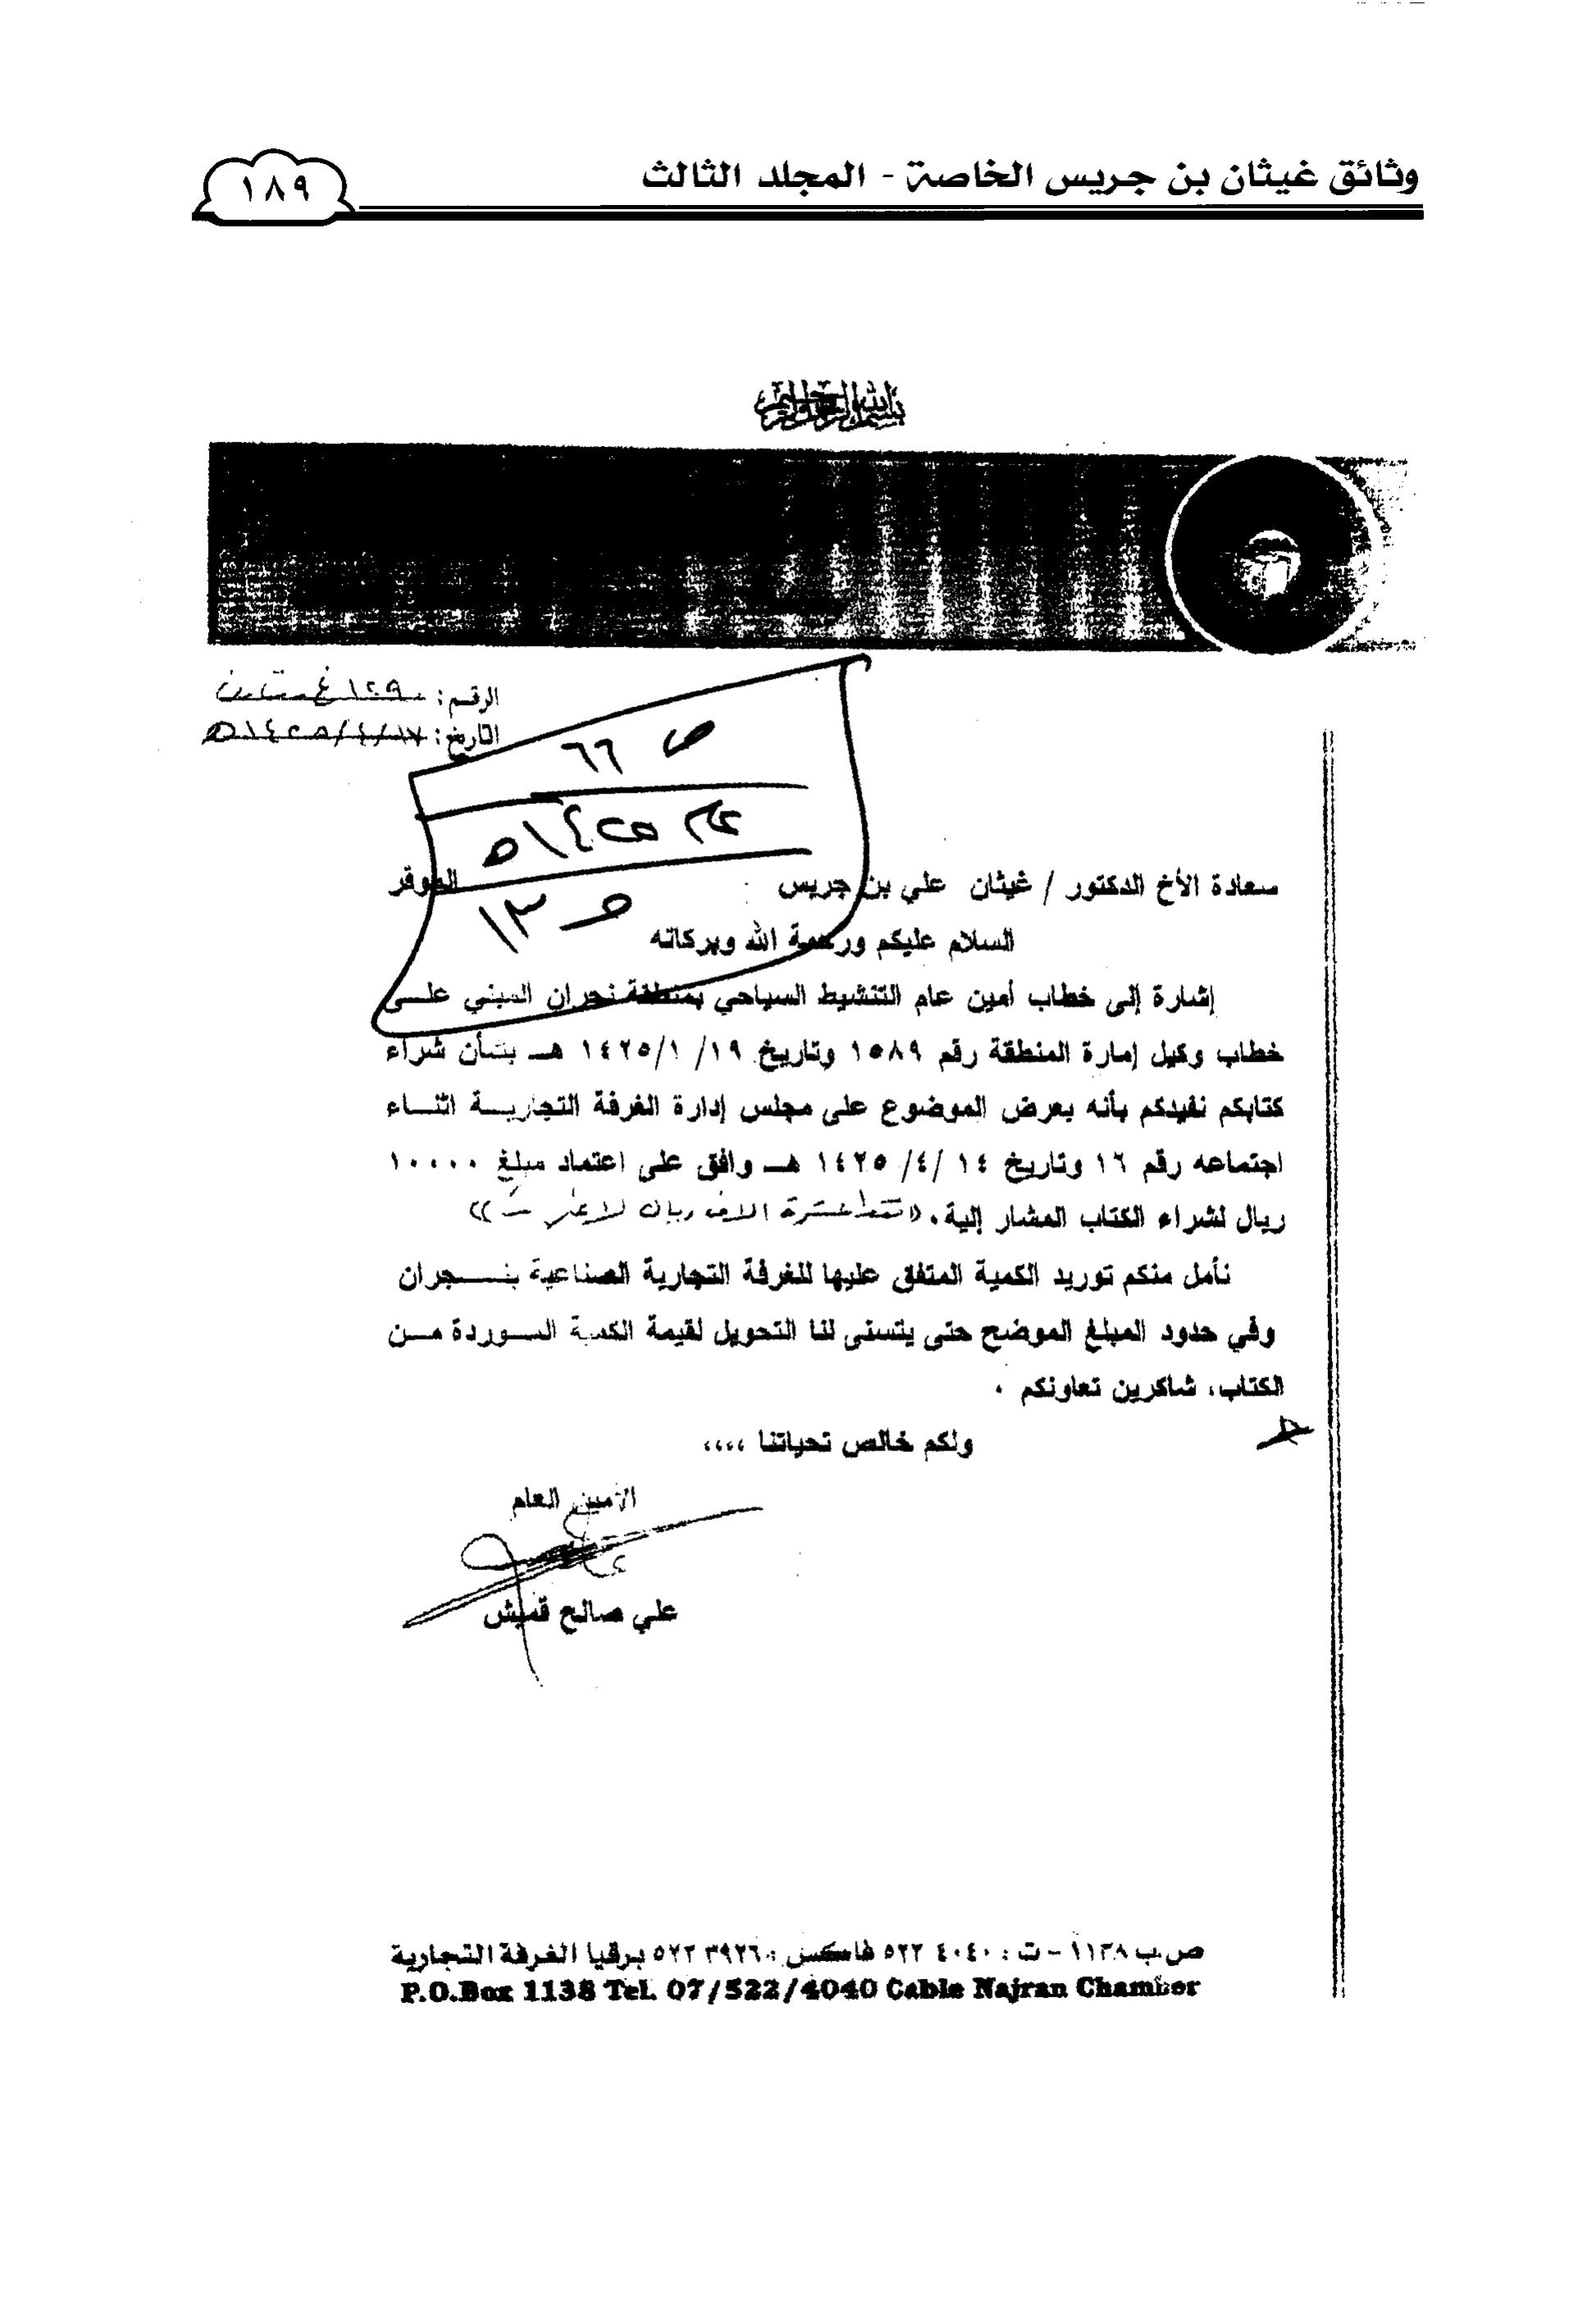 وثائق غيثان بن جريس الخاصة - المجلد الثالث
١٨٩
بسم الله الرحمن الرحيم
الرقم: ١٢٩٠
التاريخ: ١٤٢٥/٤/١٧هـ
ص ٦٦
عام ١٤٢٥هـ
ص ١٣
سعادة الأخ الدكتور / غيثان علي بن جريس الموقر
السلام عليكم ورحمة الله وبركاته
إشارة إلى خطاب أمين عام التنشيط السياحي بمنطقة نجران المبني علـــى
خطاب وكيل إمارة المنطقة رقم ١٥٨٩ وتاريخ ١٩/ ١٤٢٥/١ هـــ بشأن شراء
كتابكم نفيدكم بأنه بعرض الموضوع على مجلس إدارة الغرفة التجاريـــة اثنـــاء
اجتماعه رقم ١٦ وتاريخ ١٤ /٤/ ١٤٢٥ هـــ وافق على اعتماد مبلغ ١٠٠٠٠
ريال لشراء الكتاب المشار إلية. «فقط عشرة الاف ريال لا غير»
نأمل منكم توريد الكمية المتفق عليها للغرفة التجارية الصناعية بنـــجران
وفي حدود المبلغ الموضح حتى يتسنى لنا التحويل لقيمة الكمية المـــوردة مـــن
الكتاب، شاكرين تعاونكم .
ولكم خالص تحياتنا ،،،،
الأمين العام
علي صالح قميش
ص.ب ١١٣٨ - ت : ٤٠٤٠ ٥٢٢ فاكس : ٣٩٢٦ ٥٢٢ برقيا الغرفة التجارية
P.O.Box 1138 Tel. 07/522/4040 Cable Najran Chamber